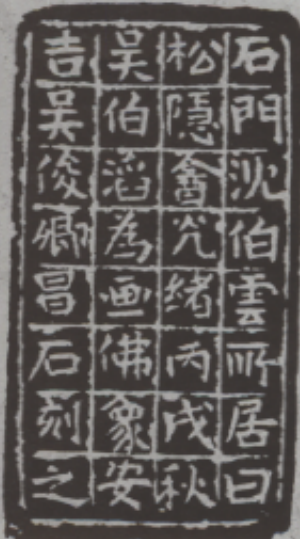 石門沈伯雲所居曰
松隱盦光緒丙戌秋
吴伯滔為画佛象安
吉吴俊卿昌石刻之